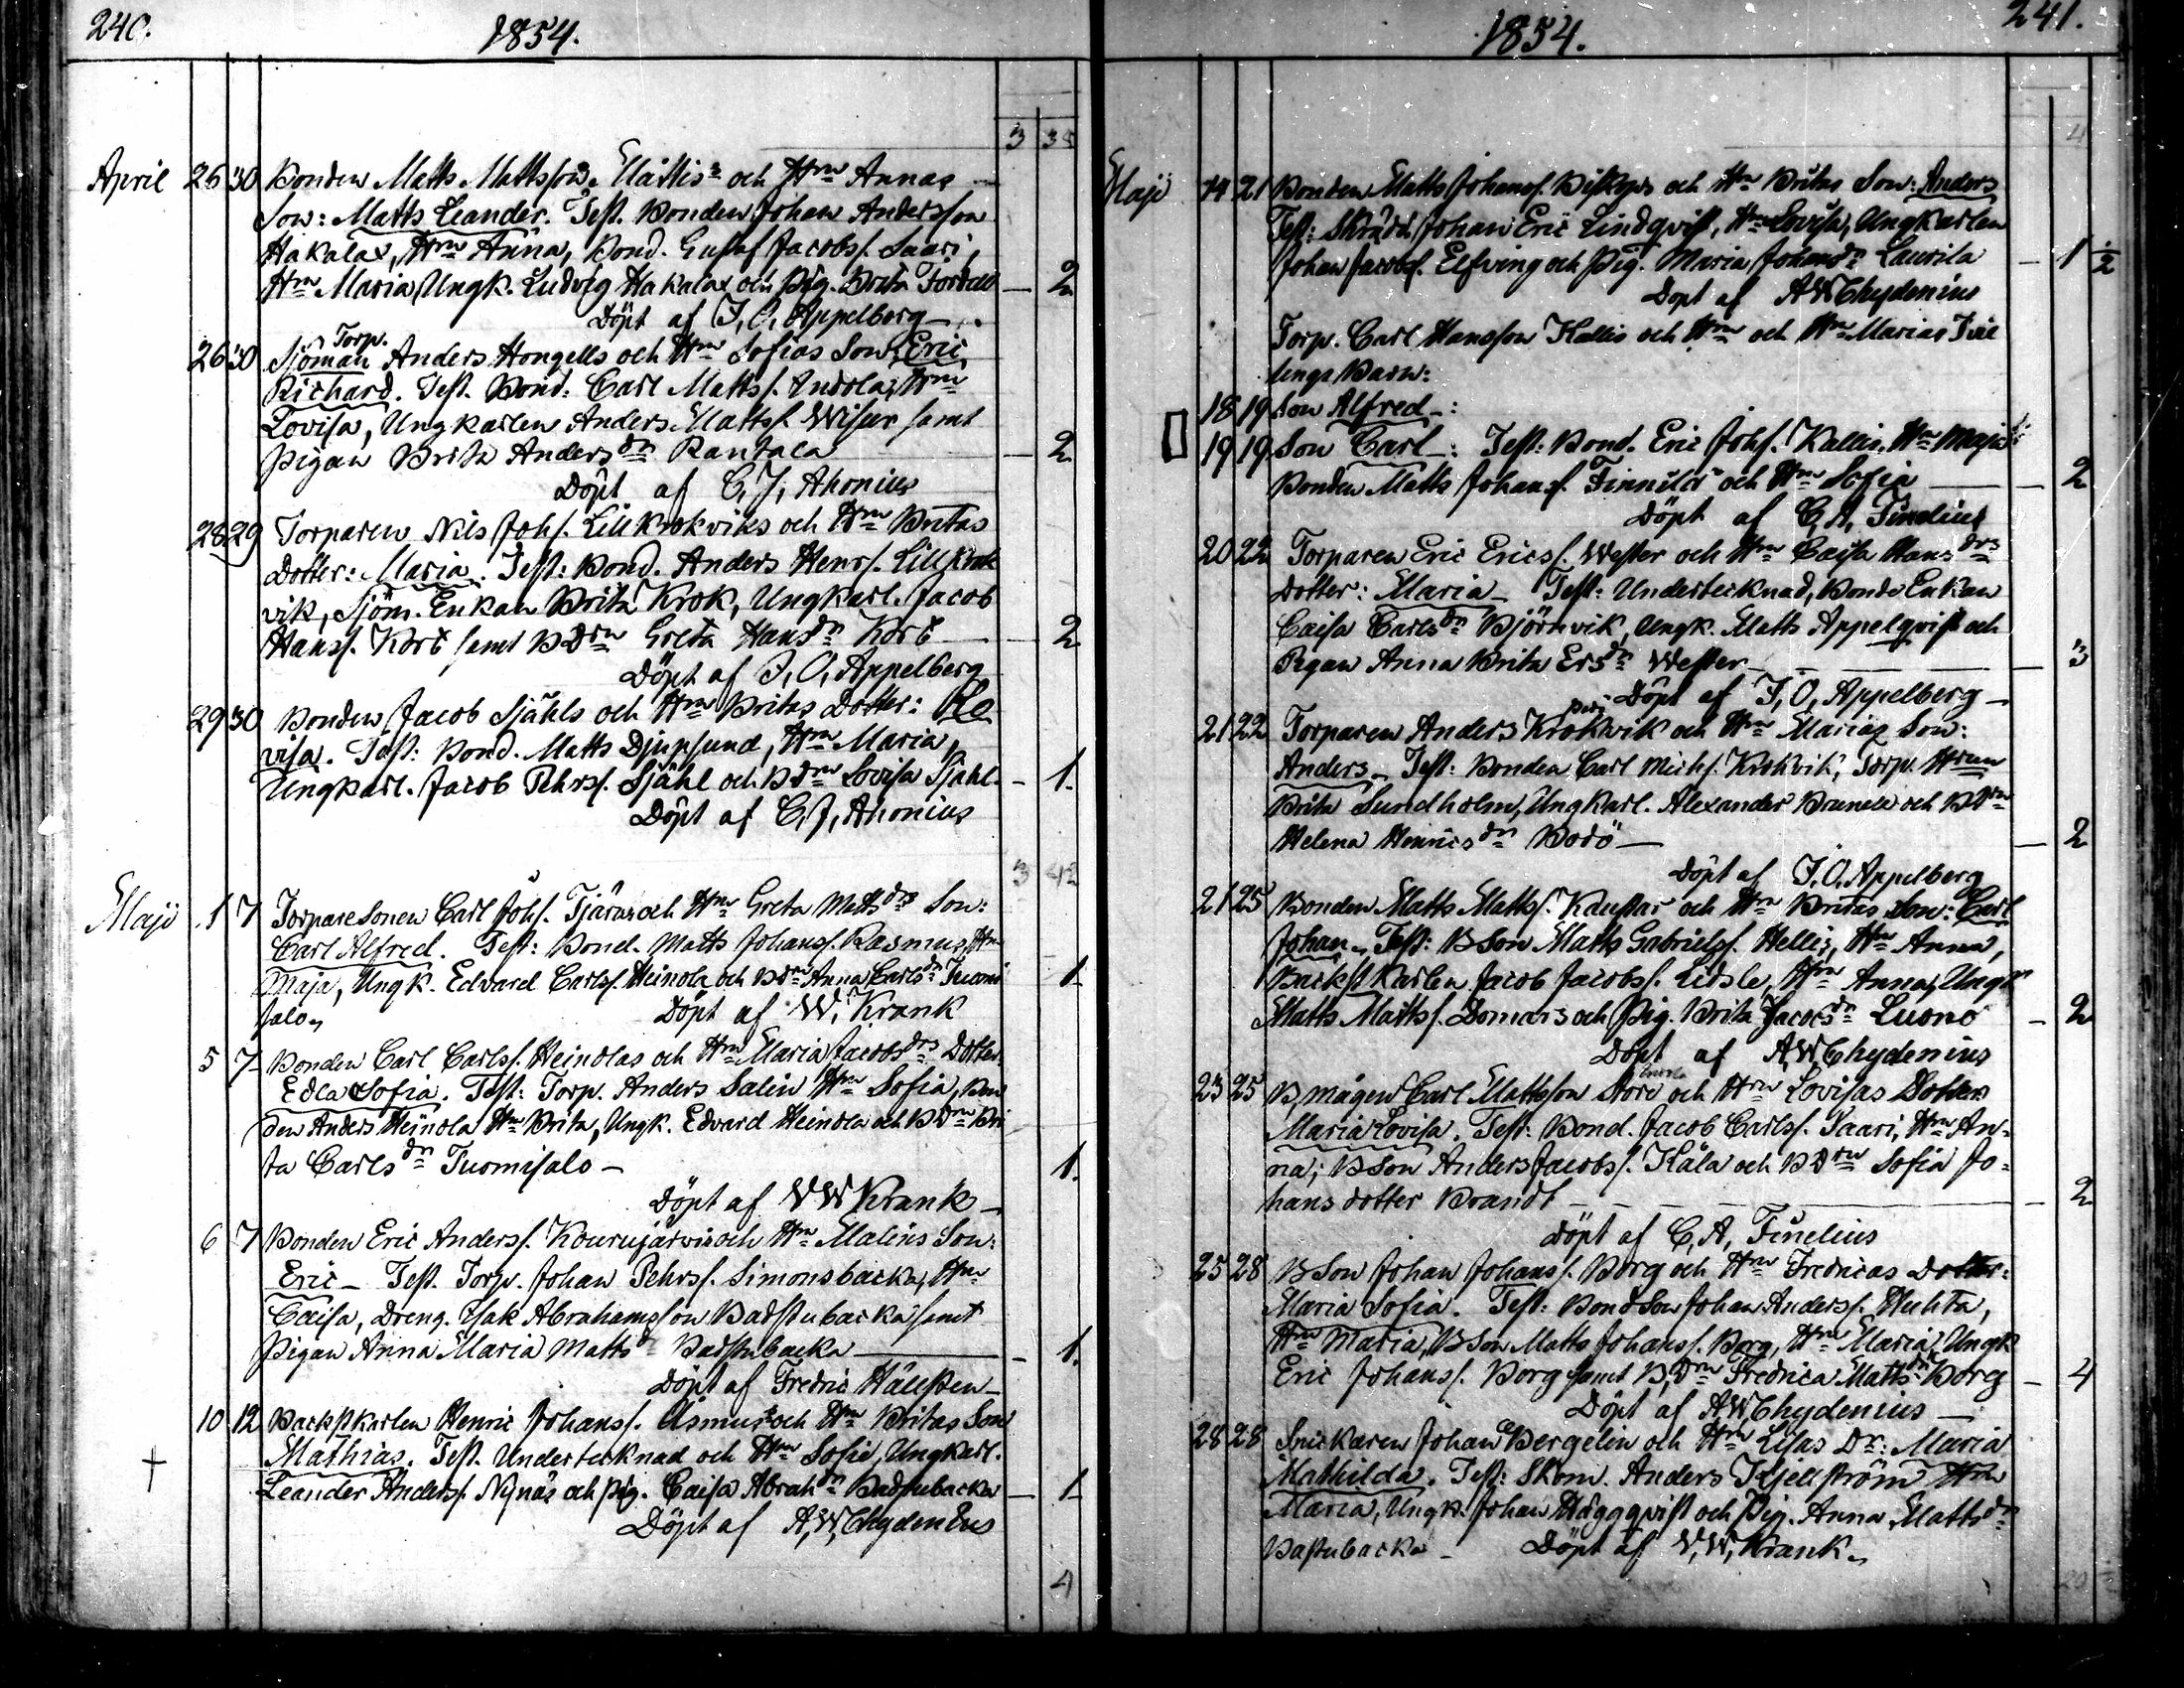 240.
1854.
3 35
April 26 30 Bonden Matts Mattsson och Hru Annas
Son: Matts Leander. Test. Bonden Johan Andersson
Hakalax, Hru Anna, Bond. Gustaf Jacobss. Saari,
Hru Maria, Ungk. Ludvig Hakalax och Pig. Brita — 2
Döpt af J. O. Appelberg —
Torp.
26 30 Sjöman Anders Hongells och Hru Sofias Son: Eric
Richard. Test. Bond. Carl Matts s. Indola, Hru
Lovisa, Ungkarlen Anders Matts s. Wisur samt
Pigan Brita Andersdr Rantala — 2
Döpt af C. J. Ahonius
28 29 Torparen Nils Johs. Lillkrokviks och Hru Britas
Dotter: Maria. Test: Bond. Anders Henrs. Lillkrok
vik, Sjöm. Enkan Brita Krok, Ungkarl. Jacob
Hanss. Kort samt BDrn Greta Hansdr Kort — 2
Döpt af J. O. Appelberg
29 30 Bonden Jacob Sjähls och Hru Britas Dotter: Lo
visa. Test: Bond. Matts Djupsund, Hru Maria,
Ungkarl. Jacob Pehrss. Sjähl och BDrn Lovisa Sjähl. — 1.
Döpt af C. J. Ahonius
3 42
Maji 1 7 Torparesonen Carl Johs. Tjäru och Hru Greta Mattsdrs Son:
Carl Alfred. Test: Bond. Matts Johanss. Rasmus, Hru
Maja, Ungk. Edvard Carlss. Heinola och BDrn Anna Carlsdr Tuomi 1
salo. Döpt af W. Krank
5 7 Bonden Carl Carlss. Heinolas och Hru Maria Jacobsdrs Dotter
Edla Sofia. Test: Torp. Anders Salin Hru Sofia, Bon
den Anders Heinola Hru Brita, Ungk. Edvard Heinola och BDrn Bri
ta Carlsdr Tuomisalo — 1.
Döpt af W W Krank —
6 7 Bonden Eric Anderss. Kourujärvis och Hru Malins Son:
Eric — Test. Torp. Johan Pehrss. Simonsbacka, Hru
Caisa, Dreng. Isak Abrahamsson Badstubacka samt
Pigan Anna Maria Mattsdr Badstubacka — 1.
Döpt af Fredric Hällsten —
10 12 Backstkarlen Henric Johanss. Åsmus och Hru Britas Son
Mathias. Test. Undertecknad och Hru Sofie, Ungkarl.
Leander Anderss. Nynäs och Pig. Caisa Abrahdr Badstubacka — 1
Döpt af A. W. Chydenius
4
241.
1854.
4
Maji 14 21 Bonden Matts Johanss. Biskops och Hru Britas Son: Anders
Test: Skrädd. Johan Eric Lindqvist, Hru Lovisa, Ungkarlen
Johan Jacobss. Elfving och Pig. Maria Johansdr Laurila — 1 1/2
Döpt af AW Chydenius
Torp. Carl Hansson Kallis och Hru och Hru Marias Tvil
linga Barn:
18 19 Son Alfred —:
19 19 Son Carl —: Test: Bond. Eric Johs. Kallis, Hru Maja
Bonden Matts Johanss. Finnilä och Hru Sofia — 2
Döpt af C. A. Finelius
20 22 Torparen Eric Ericss. Wester och Hru Caisa Hansdrs
Dotter: Maria — Test: Undertecknad, Bonde Enkan
Caisa Carlsdr Björnvik, Ungk. Matts Appelqvist och
Pigan Anna Brita Ersdr Wester — 3
Döpt af J. O. Appelberg —
21 22 Torparen Anders Krokvik och Hru Marias Son:
Anders — Test: Bonden Carl Michs. Krokvik, Torp. Hrun
Brita Sundholm, Ungkarl. Alexander Brunell och BDrn
Helena Henricsdr Bodö — 2
Döpt af J. O. Appelberg
21 25 Bonden Matts Mattss. Kaustar och Hru Britas Son: Carl
Johan. Test: BSon Matts Gabrielss. Hellis, Hru Anna,
Backstkarlen Jacob Jacobss. Lidsle, Hru Anna, Ungk
Matts Mattss. Domars och Pig. Brita Jacobsdr Luono — 2
Döpt af AW Chydenius
23 25 B, mågen Carl Mattsson Store och Hru Lovisas Dotter
Maria Lovisa. Test: Bond. Jacob Carlss. Saari, Hru An-
na; BSon Anders Jacobss. Kåla och BDrn Sofia Jo-
hans dotter Brandt — 2
Döpt af C. A. Finelius
25 28 BSon Johan Johanss. Borg och Hru Fredricas Dotter:
Maria Sofia. Test: BondSon Johan Anderss. Huhta,
Hru Maria, BSon Matts Johanss. Borg, Hru Maria, Ungk
Eric Johanss. Borg samt B,Drn Fredrica Mattsdr Borg — 4
Döpt af AW Chydenius —
28 28 Snickaren Johan Bergelin och Hru Lisas Dr: Maria
Mathilda. Test: Skom. Anders Kjellström Hru
Maria, Ungk. Johan Häggqvist och Pig. Anna Mattsdr
Bastubacka — Döpt af W. W. Krank.